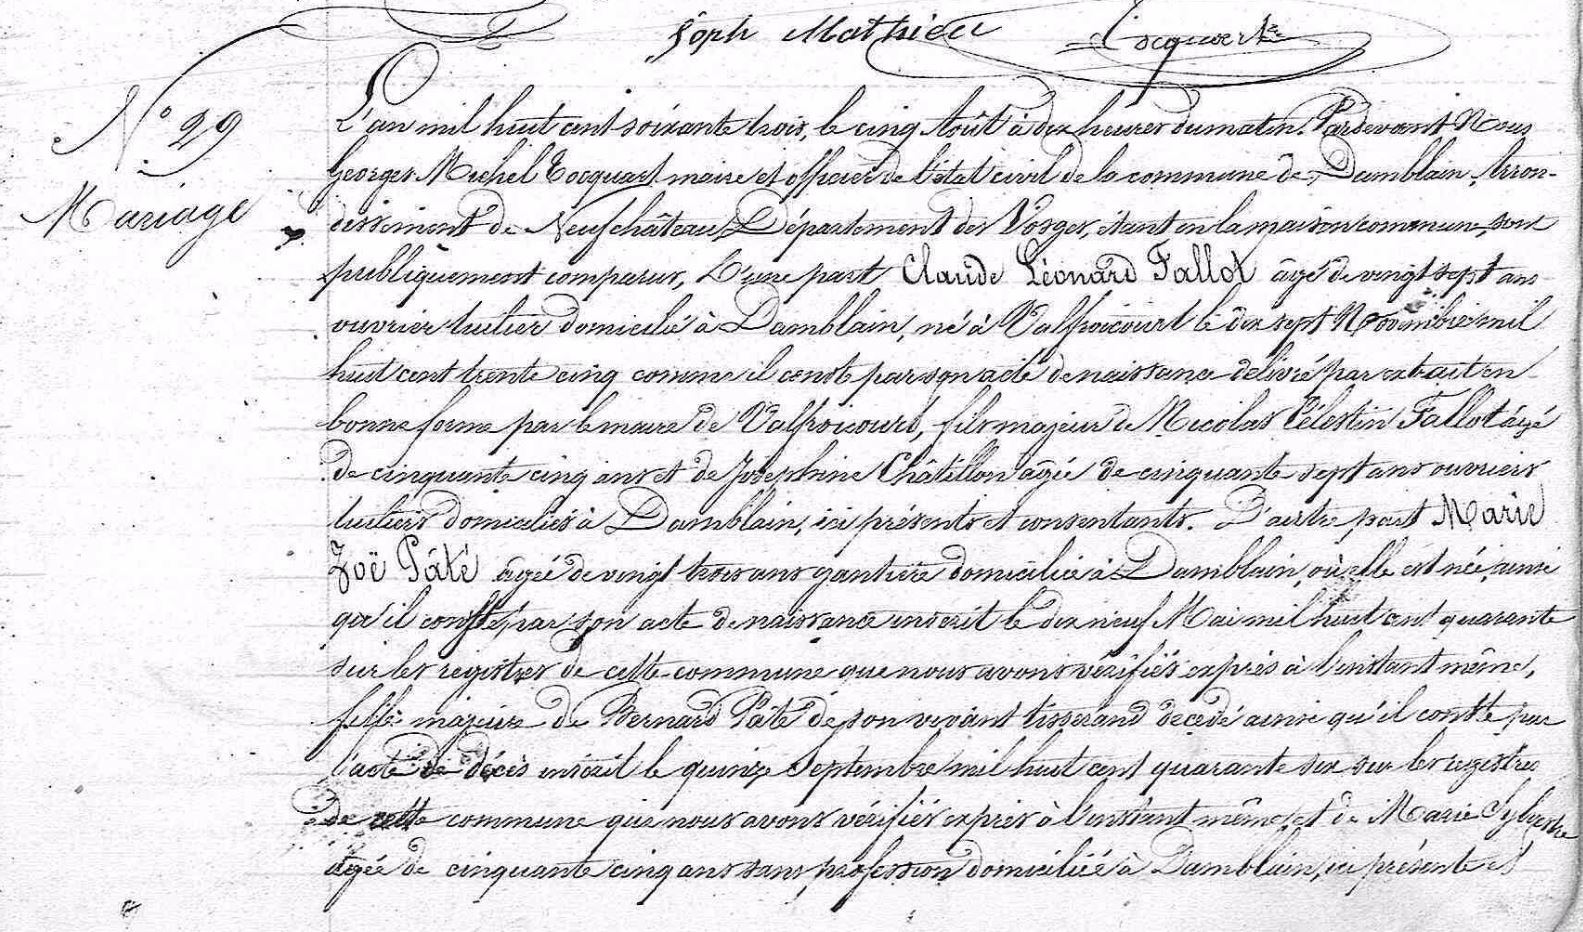 Joph Mathieu Tocquart
N° 29
Mariage
L'an mil huit cent soixante trois, le cinq Août à dix heures du matin. Pardevant Nous
Georges Michel Tocquart maire et officier de l'état civil de la commune de Damblain, Arron-
dissement de Neufchâteau, Département des Vosges, étant en la maison commune, sont
publiquement comparus, D'une part Claude Léonard Fallot âgé de vingt sept ans
ouvrier luthier domicilié à Damblain, né à Valfroicourt le dix sept Novembre mil
huit cent trente cinq comme il conste par son acte de naissance délivré par extrait en
bonne forme par le maire de Valfroicourt, fils majeur de Nicolas Célestin Fallot âgé
de cinquante cinq ans et de Joséphine Châtillon âgée de cinquante sept ans ouvriers
luthiers domiciliés à Damblain, ici présents et consentants. D'autre part Marie
Zoë Pâté âgée de vingt trois ans gantière domiciliée à Damblain, où elle est née, ainsi
qu'il conste, par son acte de naissance inscrit le dix neuf Mai mil huit cent quarante
sur les registres de cette commune que nous avons vérifiés exprès à l'instant même,
fille majeure de Bernard Pâté de son vivant tisserand décédé ainsi qu'il conste par
l'acte de décès inscrit le quinze Septembre mil huit cent quarante six sur les registres
de cette commune que nous avons vérifiés exprès à l'instant même, et de Marie Sylvestre
âgée de cinquante cinq ans sans profession domiciliée à Damblain, ici présente et